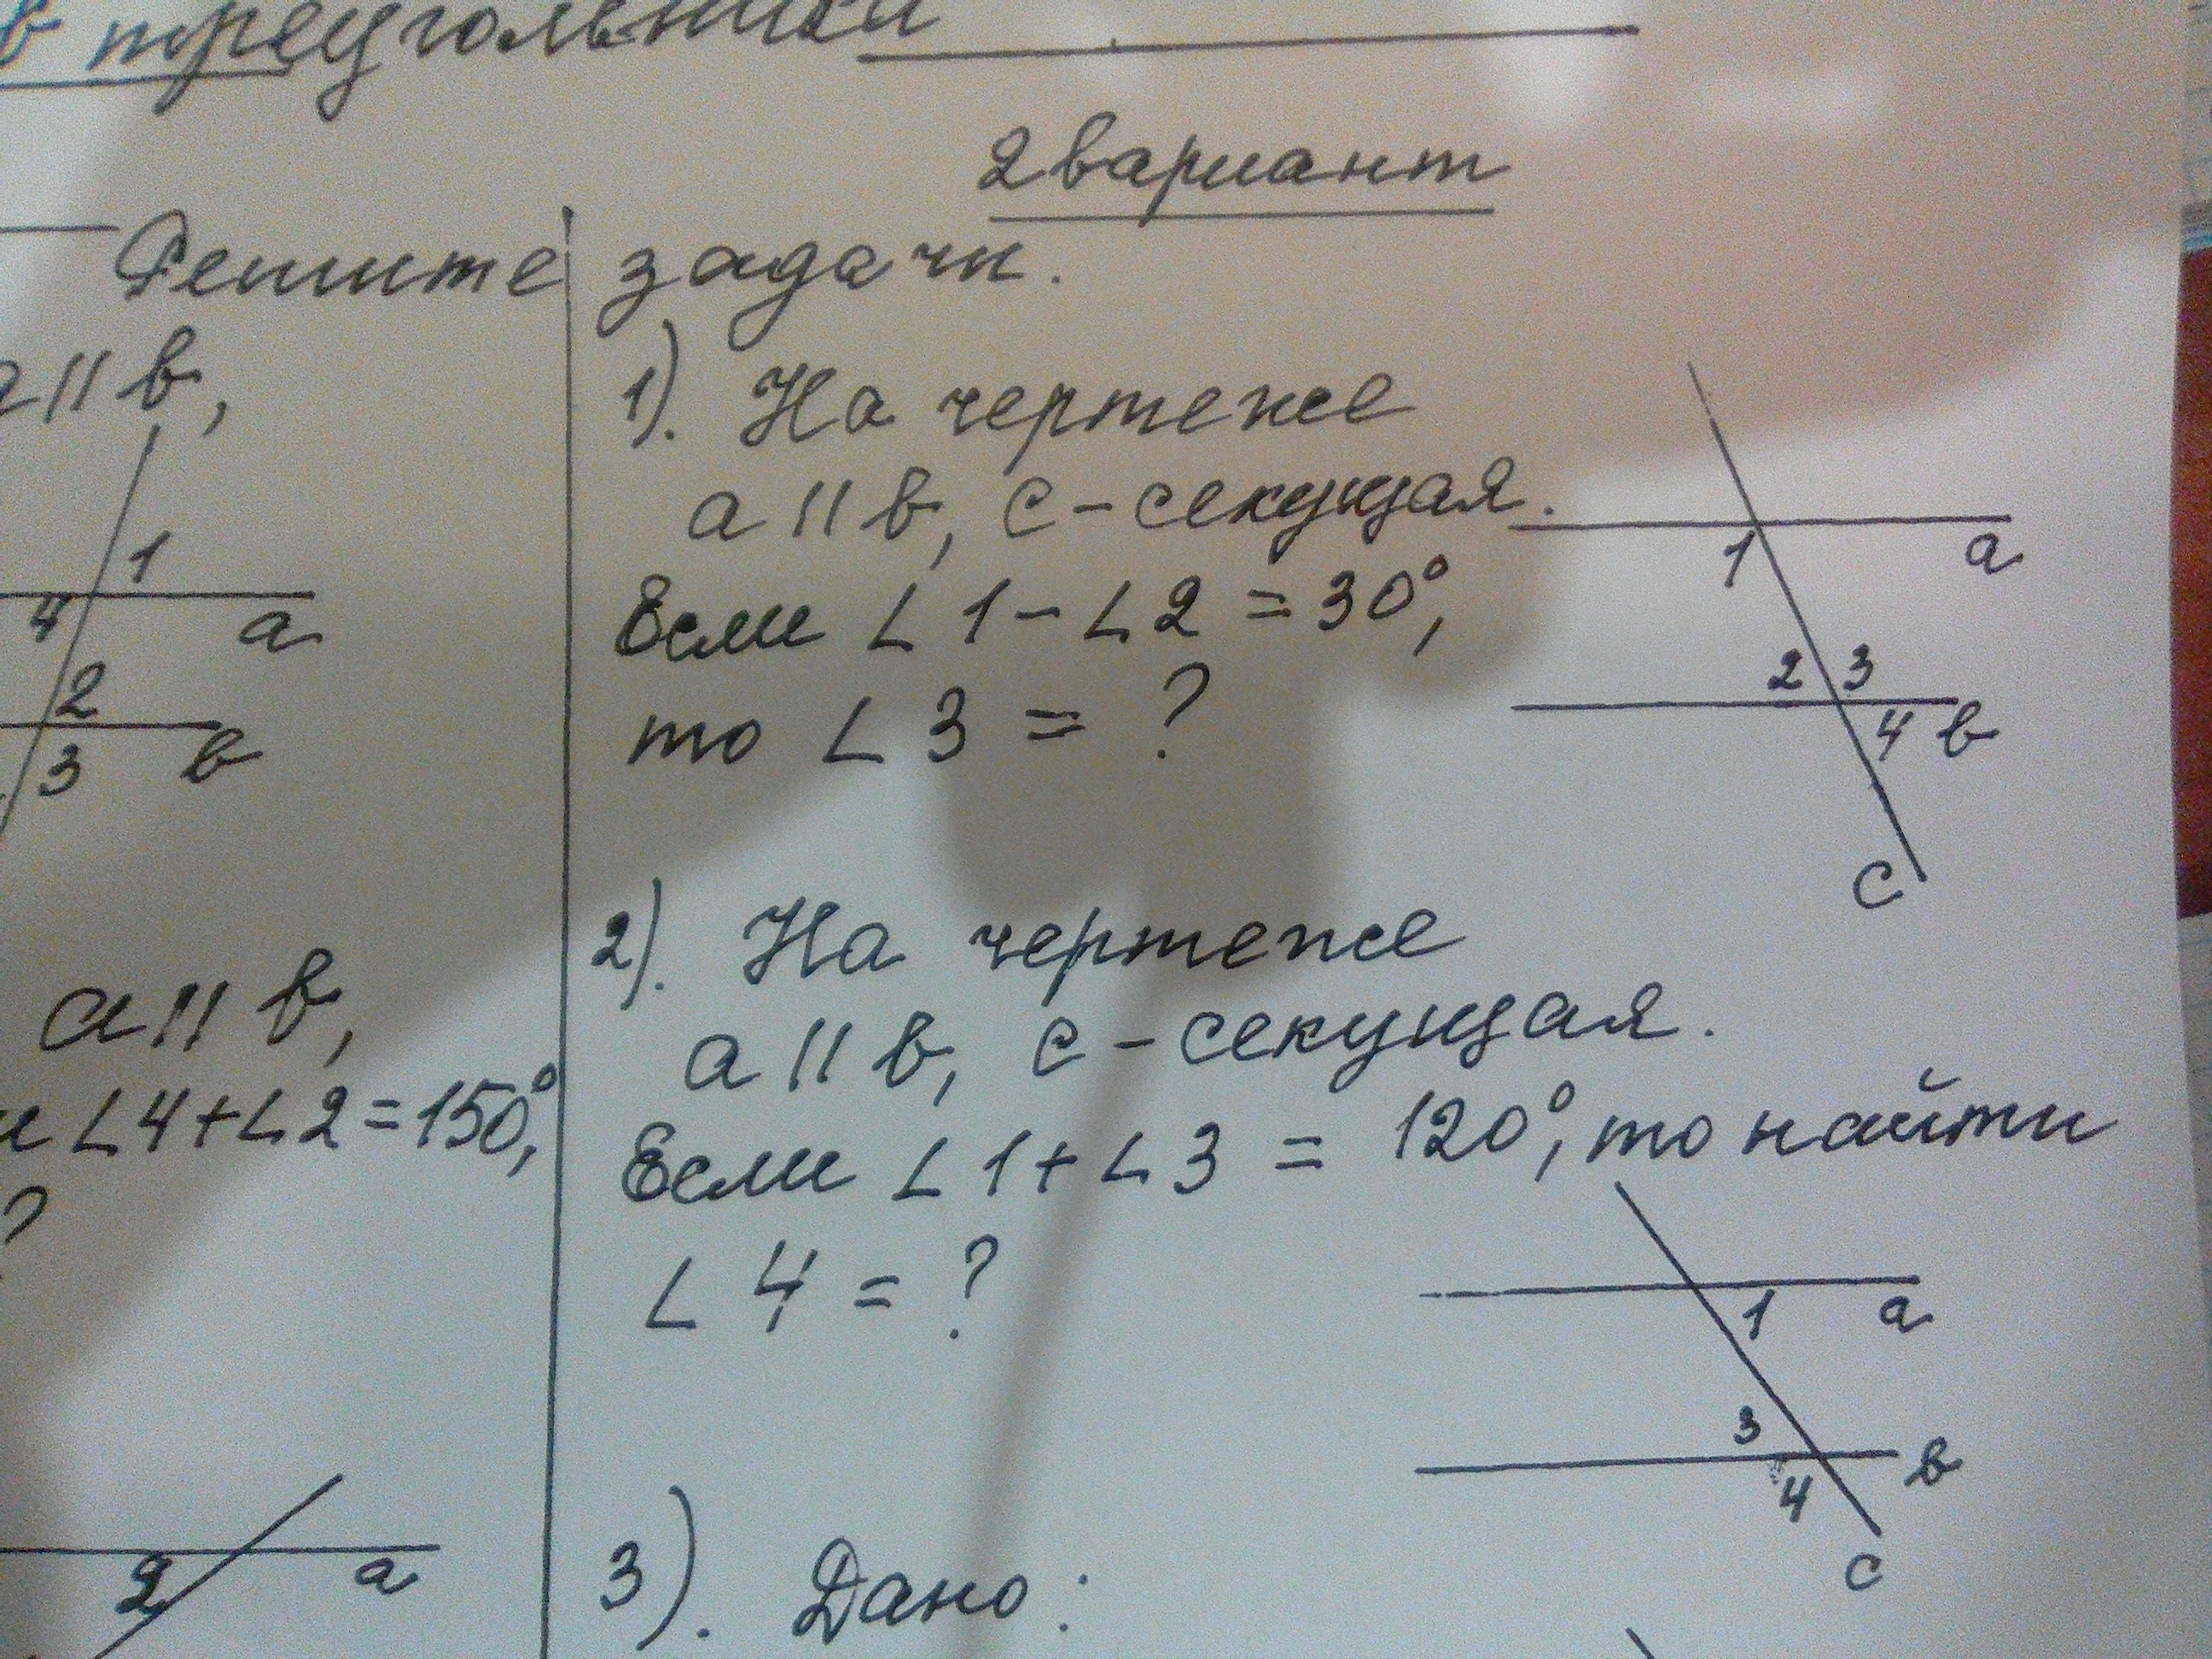 в треугольники
2 вариант
Решите задачи.
a || b,
1
4
a
2
b
3
a || b,
∠4+∠2=150°,
?
2
a
1). На чертеже
a || b, c - секущая.
Если ∠1 - ∠2 = 30°,
то ∠3 = ?
1
a
2 3
4 b
c
2). На чертеже
a || b, c - секущая.
Если ∠1 + ∠3 = 120°, то найти
∠4 = ?
1 a
3
b
4
c
3). Дано: